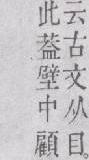 云古文从目
此蓋壁中顧